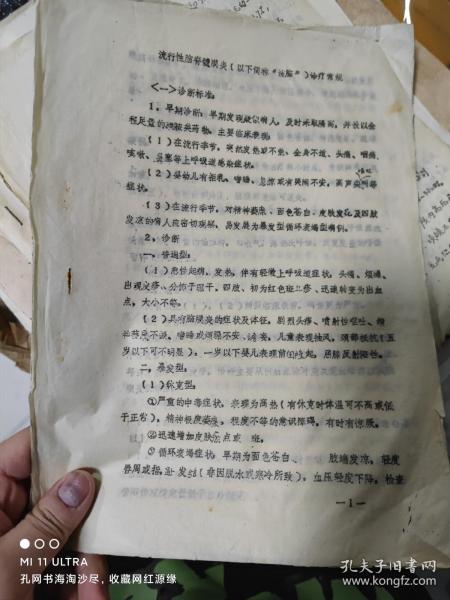 流行性脑脊髓膜炎(以下简称"流脑")诊疗常规
<一>诊断标准:
1、早期诊断:早期发现疑似病人,及时采取隔离,并投以全
程足量的磺胺类药物。主要临床表现:
(1)在流行季节,突然发热或不热、全身不适、头痛、咽痛、
咳嗽、鼻塞等上呼吸道感染症状。
(2)婴幼儿有拒乳、嗜睡、易惊或有哭闹不安,高声尖叫等
症状。
(3)在流行季节,对精神萎靡、面色苍白、皮肤发花及四肢
发凉的病人应密切观察,易发展为暴发型循环衰竭型病例。
2、诊断
一、普通型:
(1)急性起病,发热,伴有轻微上呼吸道症状,头痛,
出现皮疹、分布于躯干、四肢、初为红色斑丘疹、迅速转变为出血
点,大小不等。
(2)具有脑膜炎的症状及体征,剧烈头疼、喷射性呕吐、精
神萎靡不振、嗜睡或烦躁不安、谵妄,儿童表现抽风,颈部抵抗(五
岁以下可不明显),一岁以下婴儿表现前囟突起,屈膝反射阳性。
二、暴发型:
(1)休克型:
①严重的中毒症状,表现为高热(有休克时体温可不高或低
于正常),精神极度萎靡,程度不等的意识障碍,有时有惊厥。
②迅速增加皮肤出点或 斑。
③循环衰竭症状,早期为面色苍白、 肢端发凉,轻度
唇周或指、趾发绀(非因脱水或寒冷所致),血压轻度下降,检查
—1—
MI 11 ULTRA
孔网书海淘沙尽,收藏网红源缘
孔夫子旧书网
www.kongfz.com